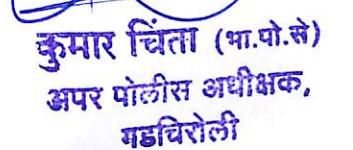 कुमार चिंता (भा.पो.से)
अपर पोलीस अधीक्षक,
गडचिरोली